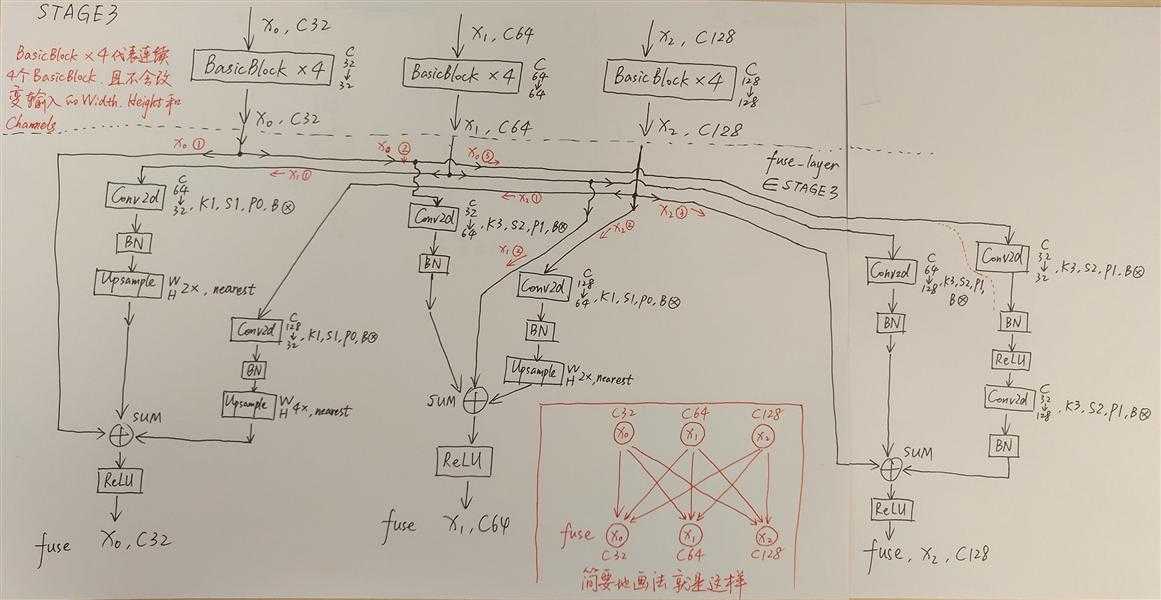 STAGE3
BasicBlock × 4 代表连续
4个BasicBlock. 且不会改
变输入的Width. Height和
Channels
X0, C32
BasicBlock × 4
C
32
↓
32
X0, C32
X1, C64
BasicBlock × 4
C
64
↓
64
X1, C64
X2, C128
BasicBlock × 4
C
128
↓
128
X2, C128
fuse_layer
∈ STAGE3
X0 ①
X0 ②
X0 ③
X1 ①
X2 ①
X2 ②
X2 ③
X1 ②
Conv2d
C
64
↓
32, K1, S1, P0, B⊗
BN
Upsample
W
H 2x, nearest
Conv2d
C
128
↓
32, K1, S1, P0, B⊗
BN
Upsample
W
H 4x, nearest
SUM
ReLU
fuse X0, C32
Conv2d
C
32
↓
64, K3, S2, P1, B⊗
BN
Conv2d
C
128
↓
64, K1, S1, P0, B⊗
BN
Upsample
W
H 2x, nearest
SUM
ReLU
fuse X1, C64
Conv2d
C
64
↓
128, K3, S2, P1,
B⊗
BN
Conv2d
C
32
↓
32, K3, S2, P1, B⊗
BN
ReLU
Conv2d
C
32
↓
128, K3, S2, P1, B⊗
BN
SUM
ReLU
fuse, X2, C128
C32 C64 C128
X0 X1 X2
fuse X0 X1 X2
C32 C64 C128
简要地画法 就是这样